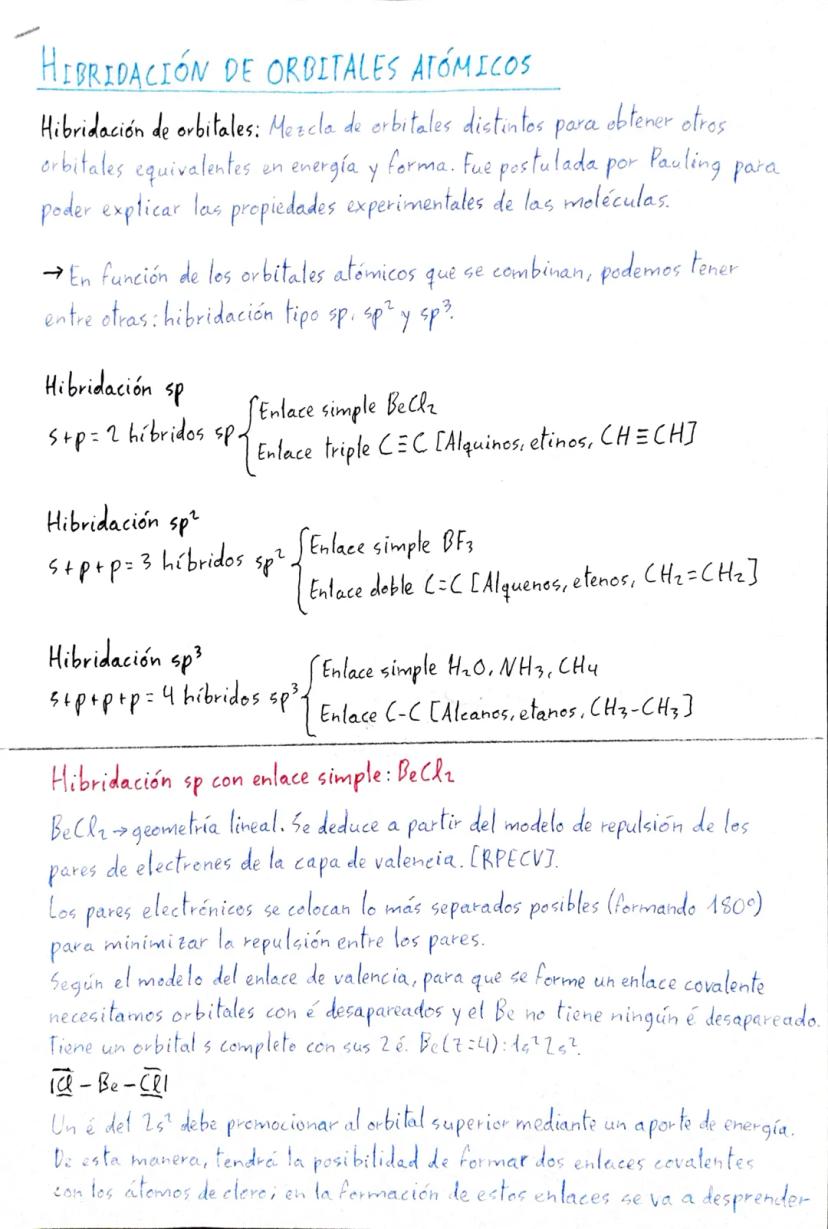 HIBRIDACIÓN DE ORBITALES ATÓMICOS
Hibridación de orbitales: Mezcla de orbitales distintos para obtener otros
orbitales equivalentes en energía y forma. Fue postulada por Pauling para
poder explicar las propiedades experimentales de las moléculas.
→ En función de los orbitales atómicos que se combinan, podemos tener
entre otras: hibridación tipo sp, sp² y sp³.
Hibridación sp
s+p = 2 híbridos sp { Enlace simple BeCl₂
Enlace triple C≡C [Alquinos, etinos, CH≡CH]
Hibridación sp²
s+p+p = 3 híbridos sp² { Enlace simple BF₃
Enlace doble C=C [Alquenos, etenos, CH₂=CH₂]
Hibridación sp³
s+p+p+p = 4 híbridos sp³ { Enlace simple H₂O, NH₃, CH₄
Enlace C-C [Alcanos, etanos, CH₃-CH₃]
Hibridación sp con enlace simple: BeCl₂
BeCl₂ → geometría lineal. Se deduce a partir del modelo de repulsión de los
pares de electrones de la capa de valencia. [RPECV].
Los pares electrónicos se colocan lo más separados posibles (formando 180º)
para minimizar la repulsión entre los pares.
Según el modelo del enlace de valencia, para que se forme un enlace covalente
necesitamos orbitales con é desapareados y el Be no tiene ningún é desapareado.
Tiene un orbital s completo con sus 2 é. Be(Z=4): 1s² 2s².
|Cl - Be - Cl|
Un é del 2s² debe promocionar al orbital superior mediante un aporte de energía.
De esta manera, tendrá la posibilidad de formar dos enlaces covalentes
con los átomos de cloro; en la formación de estos enlaces se va a desprender